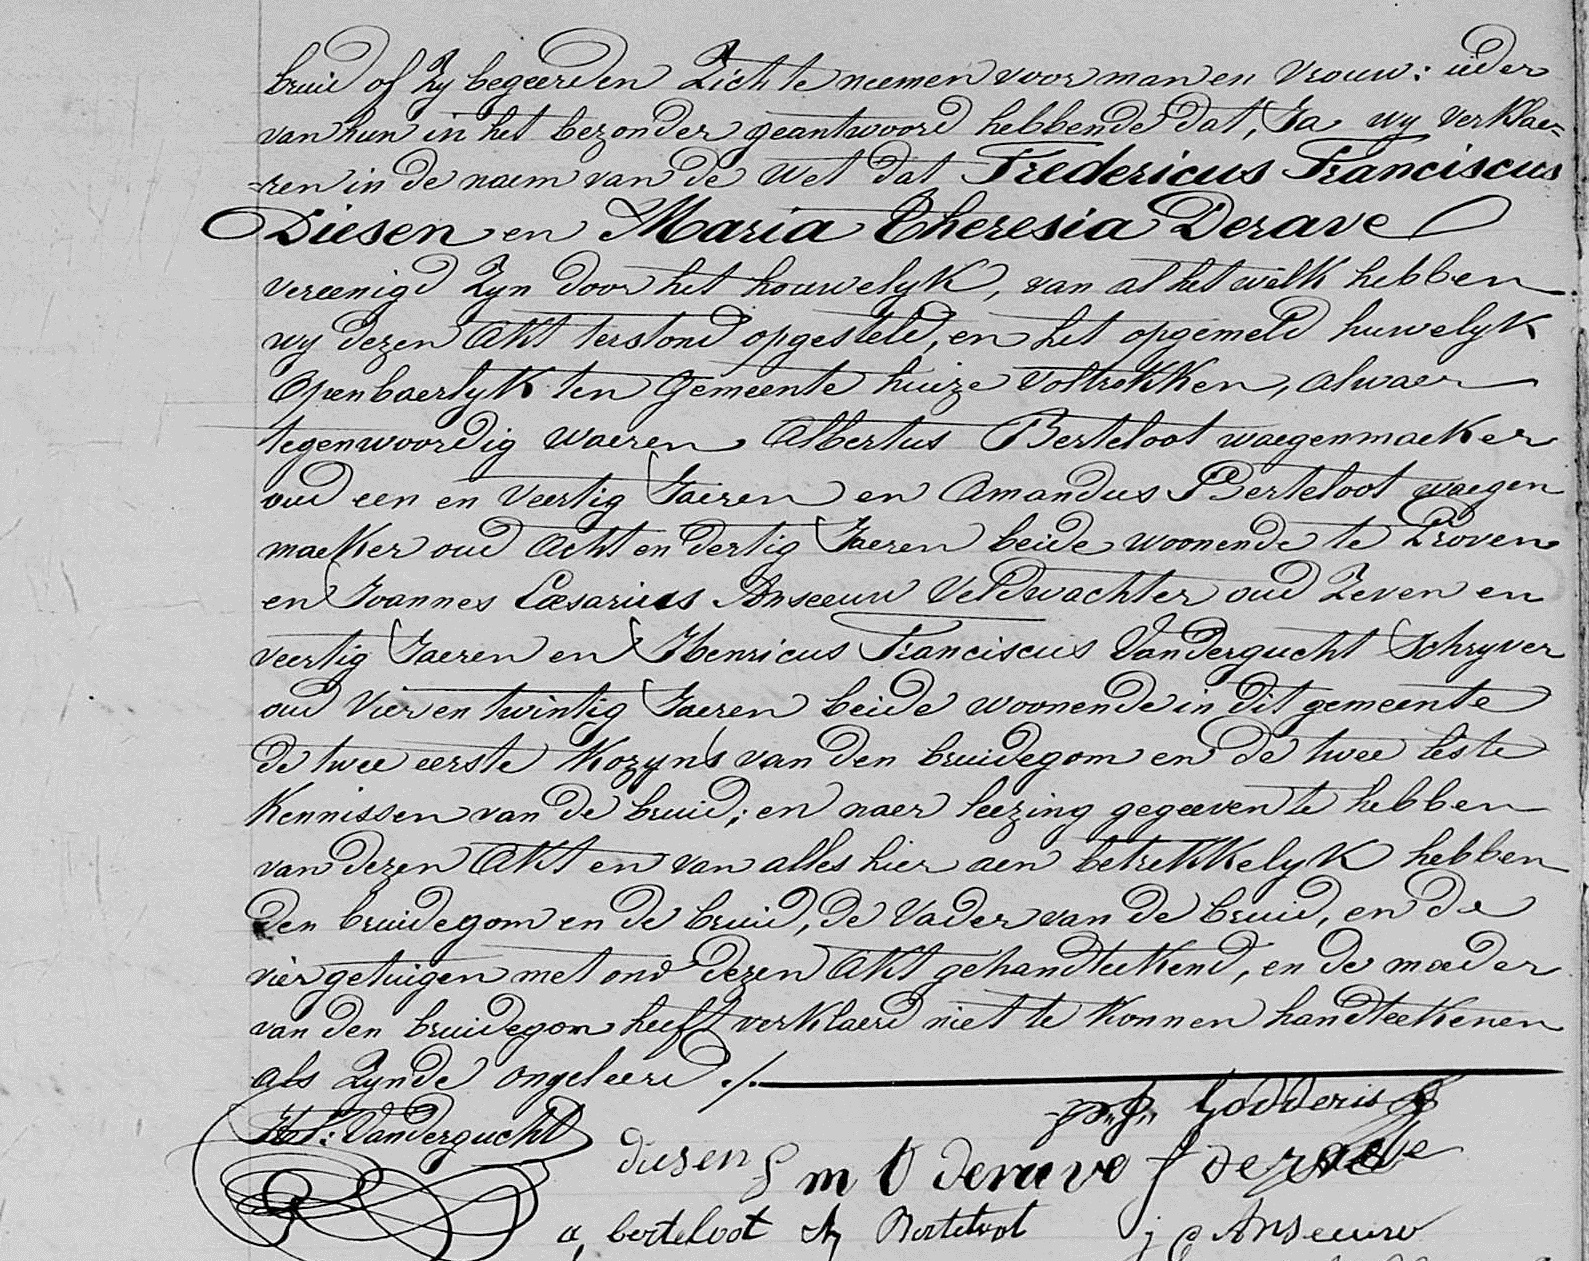 bruid of zy begeerden zich te neemen voor man en vrouw: ieder
van hun in het bezonder geantwoord hebbende dat, Ja wy verklae=
=ren in de naem van de wet dat Fredericus Franciscus
Diesen en Maria Theresia Derave
vereenigd zyn door het houwelyk, van al het welk hebben
wy dezen Akt terstond opgesteld, en het opgemeld huwelyk
openbaerlyk ten gemeente huize voltrokken, alwaer
tegenwoordig waeren Albertus Berteloot waegenmaeker
oud een en veertig Jaeren en Amandus Berteloot waegen
maeker oud acht en dertig Jaeren beide woonende te Proven
en Joannes Cæsarius Anseeuw veldwachter oud zeven en
veertig Jaeren en Henricus Franciscus Vandergucht Schryver
oud vier en twintig Jaeren beide woonende in dit gemeente
de twee eerste Kozyns van den bruidegom en de twee leste
Kennissen van de bruid; en naer leezing gegeeven te hebben
van dezen Akt en van alles hier aen betrekkelyk hebben
den bruidegom en de bruid, de Vader van de bruid, en de
vier getuigen met ons dezen Akt gehandteekend, en de moeder
van den bruidegom heeft verklaerd niet te konnen handteekenen
als zynde ongeleerd ./.
Godderis
H F: Vandergucht
diesen f m t derave f derave
a, berteloot A, Berteloot j c Anseeuw